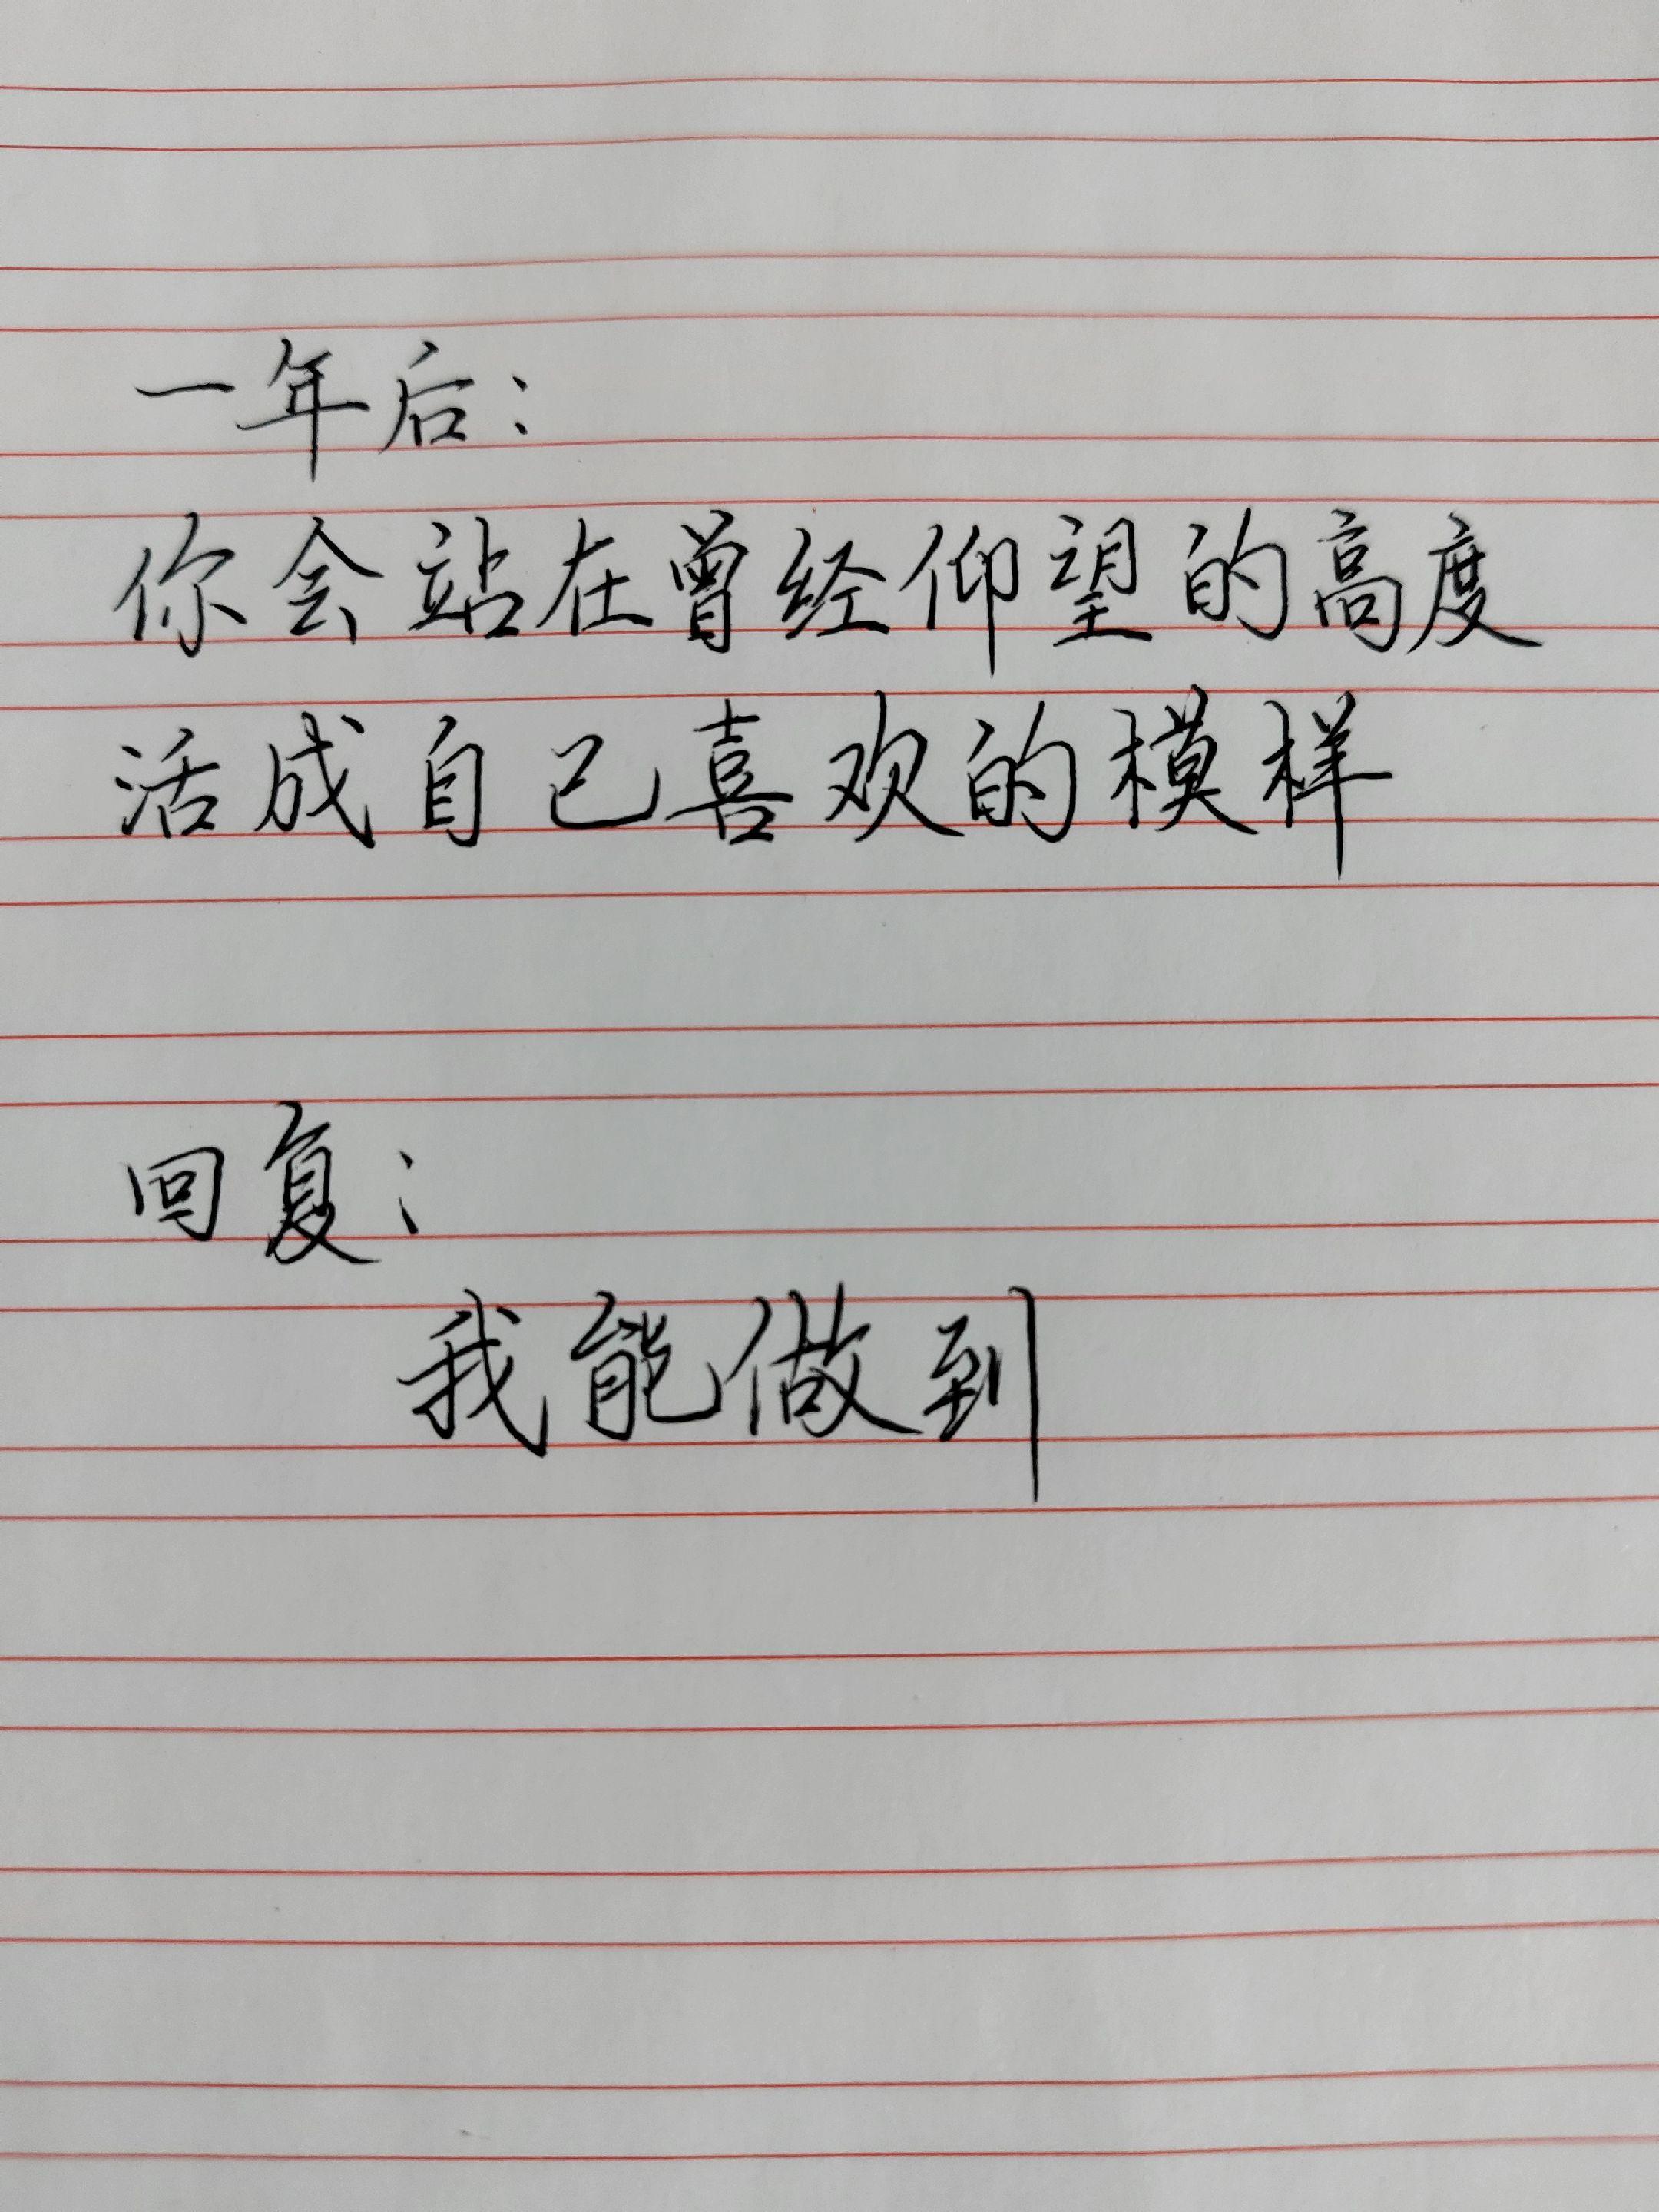 一年后：
你会站在曾经仰望的高度
活成自己喜欢的模样
回复：
我能做到